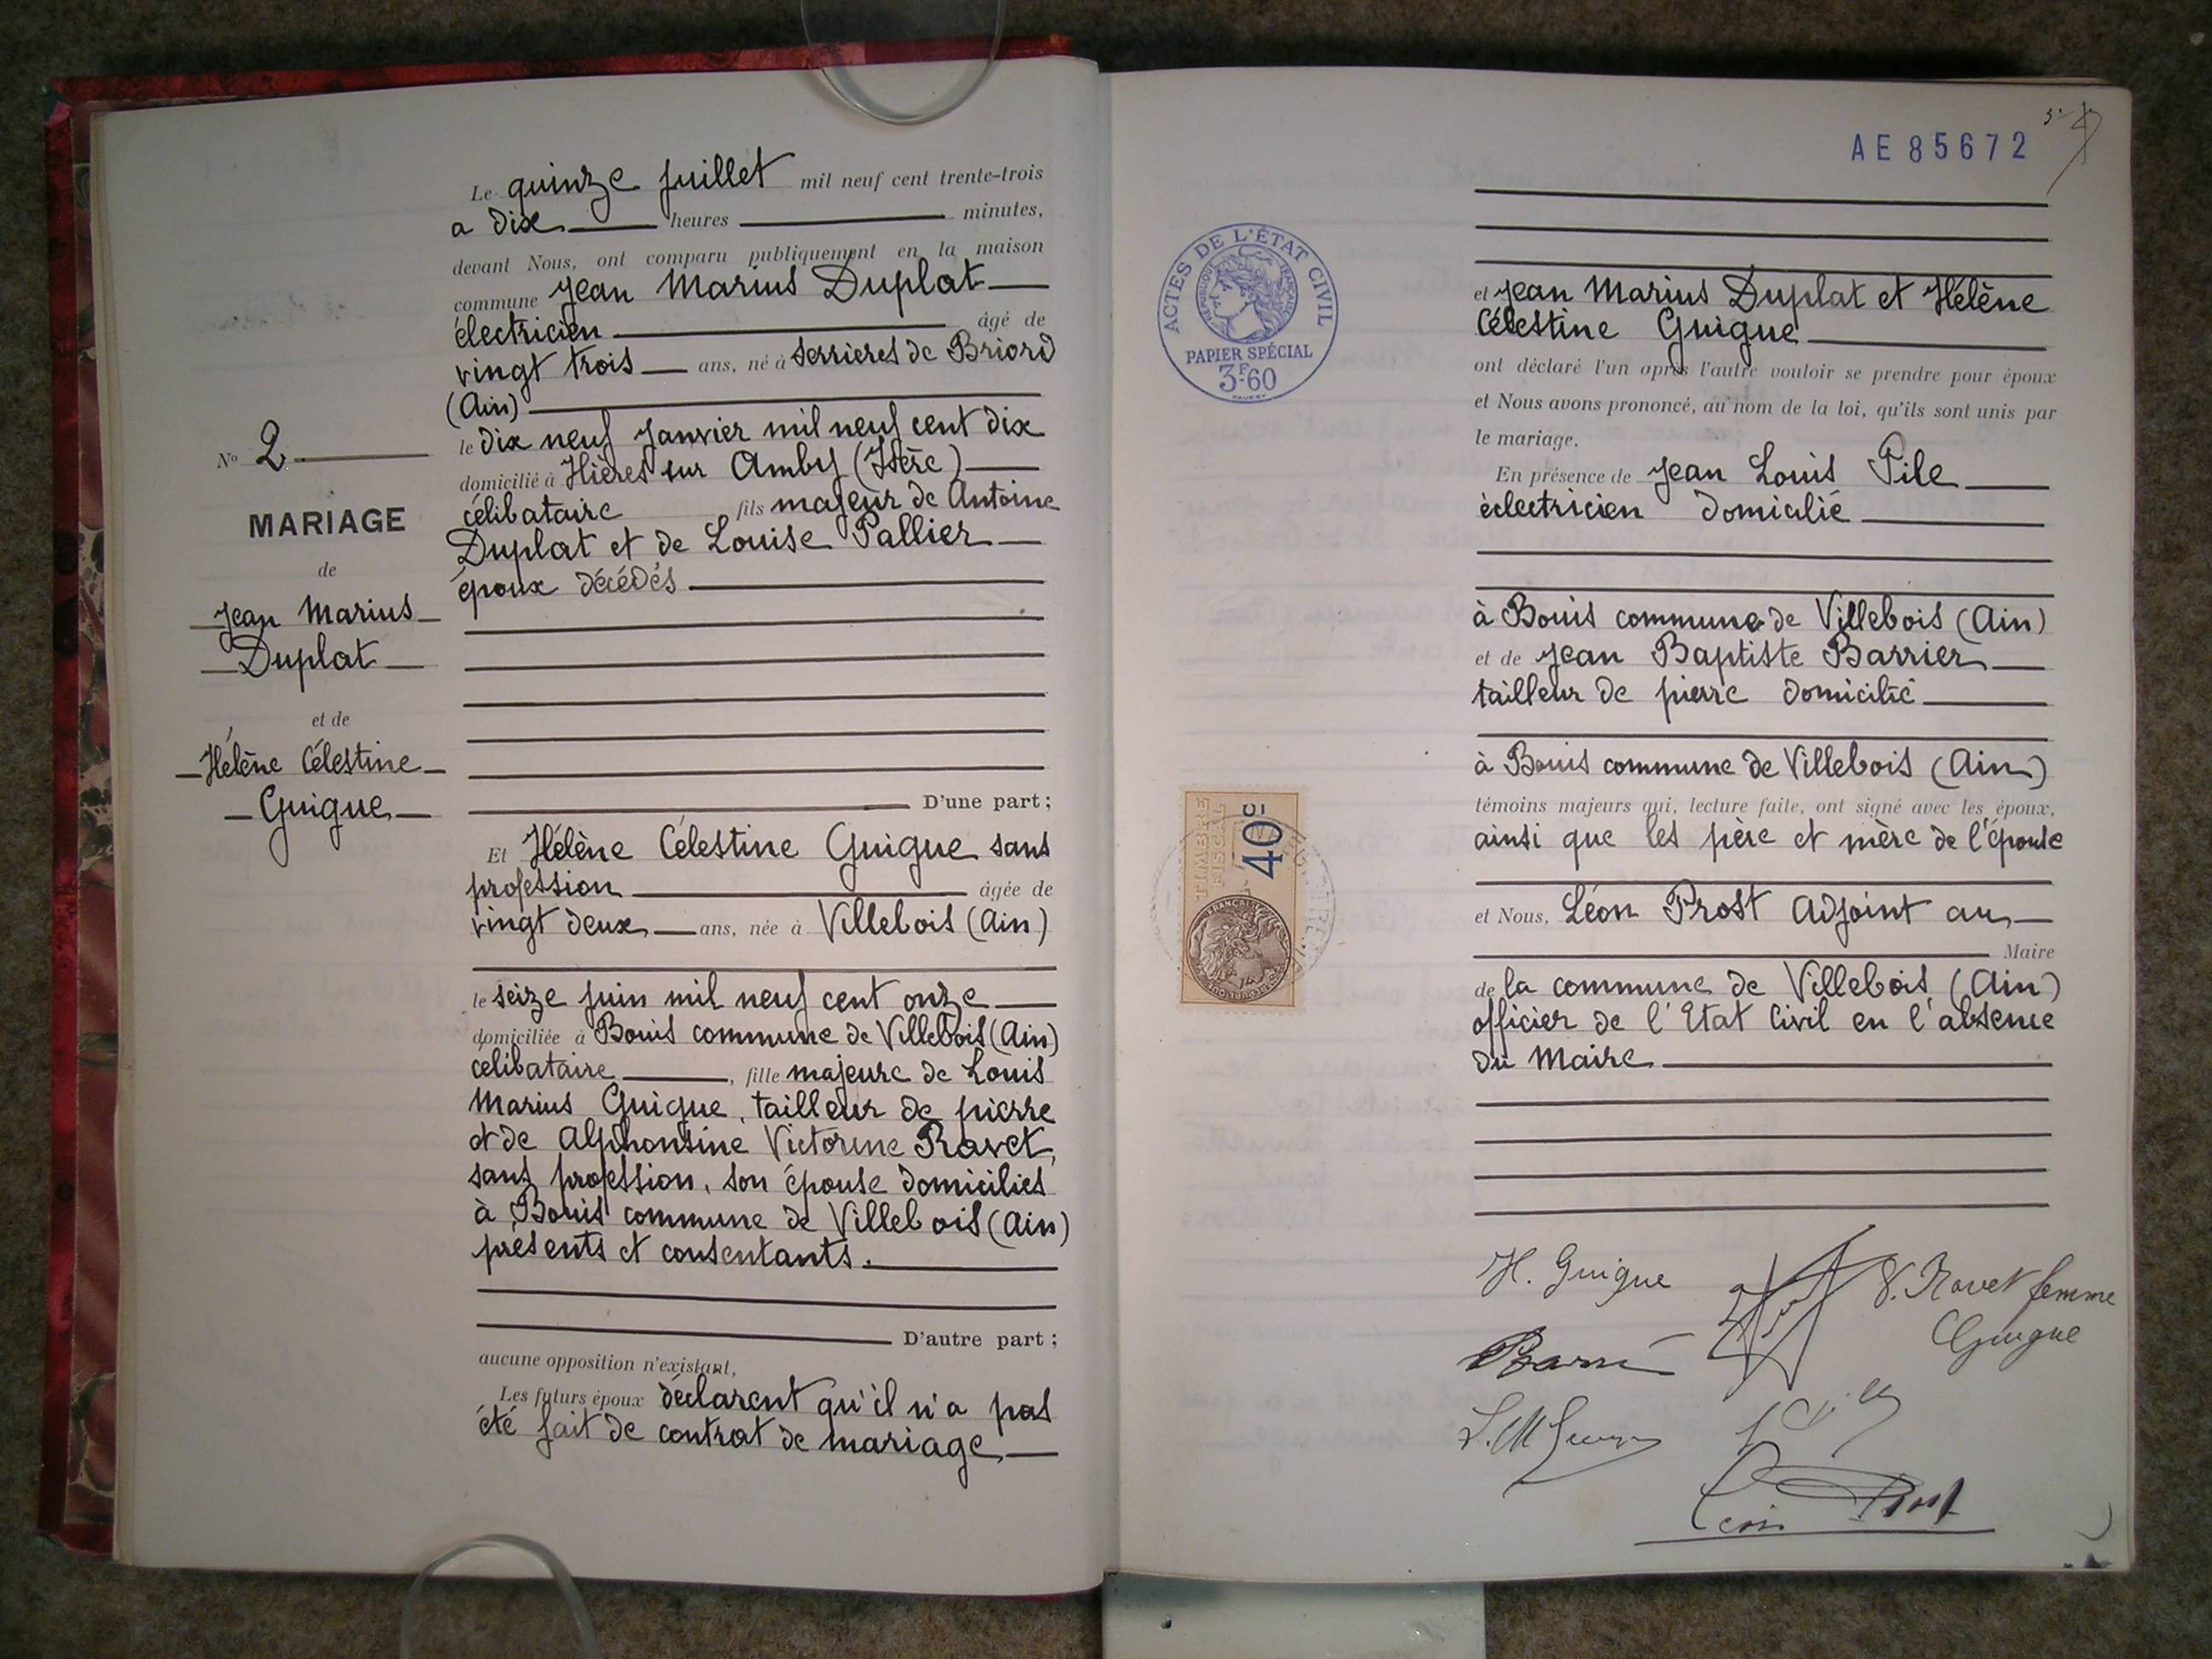 Le quinze juillet mil neuf cent trente-trois
a dix heures minutes,
devant Nous, ont comparu publiquement en la maison
commune Jean Marius Duplat
électricien âgé de
vingt trois ans, né à Serrieres de Briord
(Ain)
le dix neuf Janvier mil neuf cent dix
domicilié à Hières sur Amby (Isère)
célibataire fils majeur de Antoine
Duplat et de Louise Pallier
époux décédés
D'une part;
Et Hélène Célestine Guigue sans
profession âgée de
vingt deux ans, née à Villebois (Ain)
le seize juin mil neuf cent onze
domiciliée à Bouis commune de Villebois (Ain)
celibataire, fille majeure de Louis
Marius Guigue, tailleur de pierre
et de Alphonsine Victorine Ravet,
sans profession, son épouse domiciliés
à Bouis commune de Villebois (Ain)
présents et consentants.
D'autre part;
aucune opposition n'existant,
Les futurs époux déclarent qu'il n'a pas
été fait de contrat de mariage
N° 2
MARIAGE
de
Jean Marius
Duplat
et de
Hélène Célestine
Guigue
AE 85672
ACTES DE L'ÉTAT CIVIL
RÉPUBLIQUE FRANÇAISE
PAPIER SPÉCIAL
3F.60
et Jean Marius Duplat et Hélène
Célestine Guigue
ont déclaré l'un après l'autre vouloir se prendre pour époux
et Nous avons prononcé, au nom de la loi, qu'ils sont unis par
le mariage.
En présence de Jean Louis Pile
èclectricien domicilié
à Bouis commune de Villebois (Ain)
et de Jean Baptiste Barrier
tailleur de pierre domicilié
à Bouis commune de Villebois (Ain)
témoins majeurs qui, lecture faite, ont signé avec les époux,
ainsi que les père et mère de l'épouse
et Nous, Léon Prost Adjoint au
Maire
de la commune de Villebois (Ain)
officier de l'Etat Civil en l'absence
du Maire
TIMBRE
FISCAL
40c
H. Guigue
V. Ravet femme
Guigue
Léon Prost